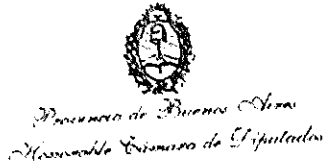 Provincia de Buenos Aires
Honorable Cámara de Diputados